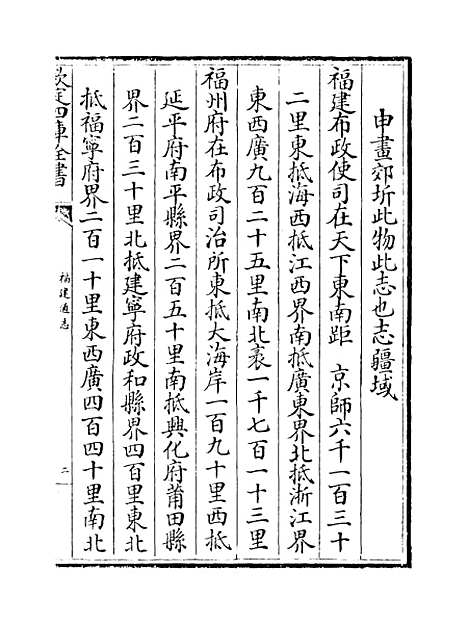 申畫郊圻此物此志也志疆域
福建布政使司在天下東南距　京師六千一百三十
二里東抵海西抵江西界南抵廣東界北抵浙江界
東西廣九百二十五里南北袤一千七百一十三里
福州府在布政司治所東抵大海岸一百九十里西抵
延平府南平縣界二百五十里南抵興化府莆田縣
界二百三十里北抵建寧府政和縣界四百里東北
抵福寧府界二百一十里東西廣四百四十里南北
欽定四庫全書
福建通志
二